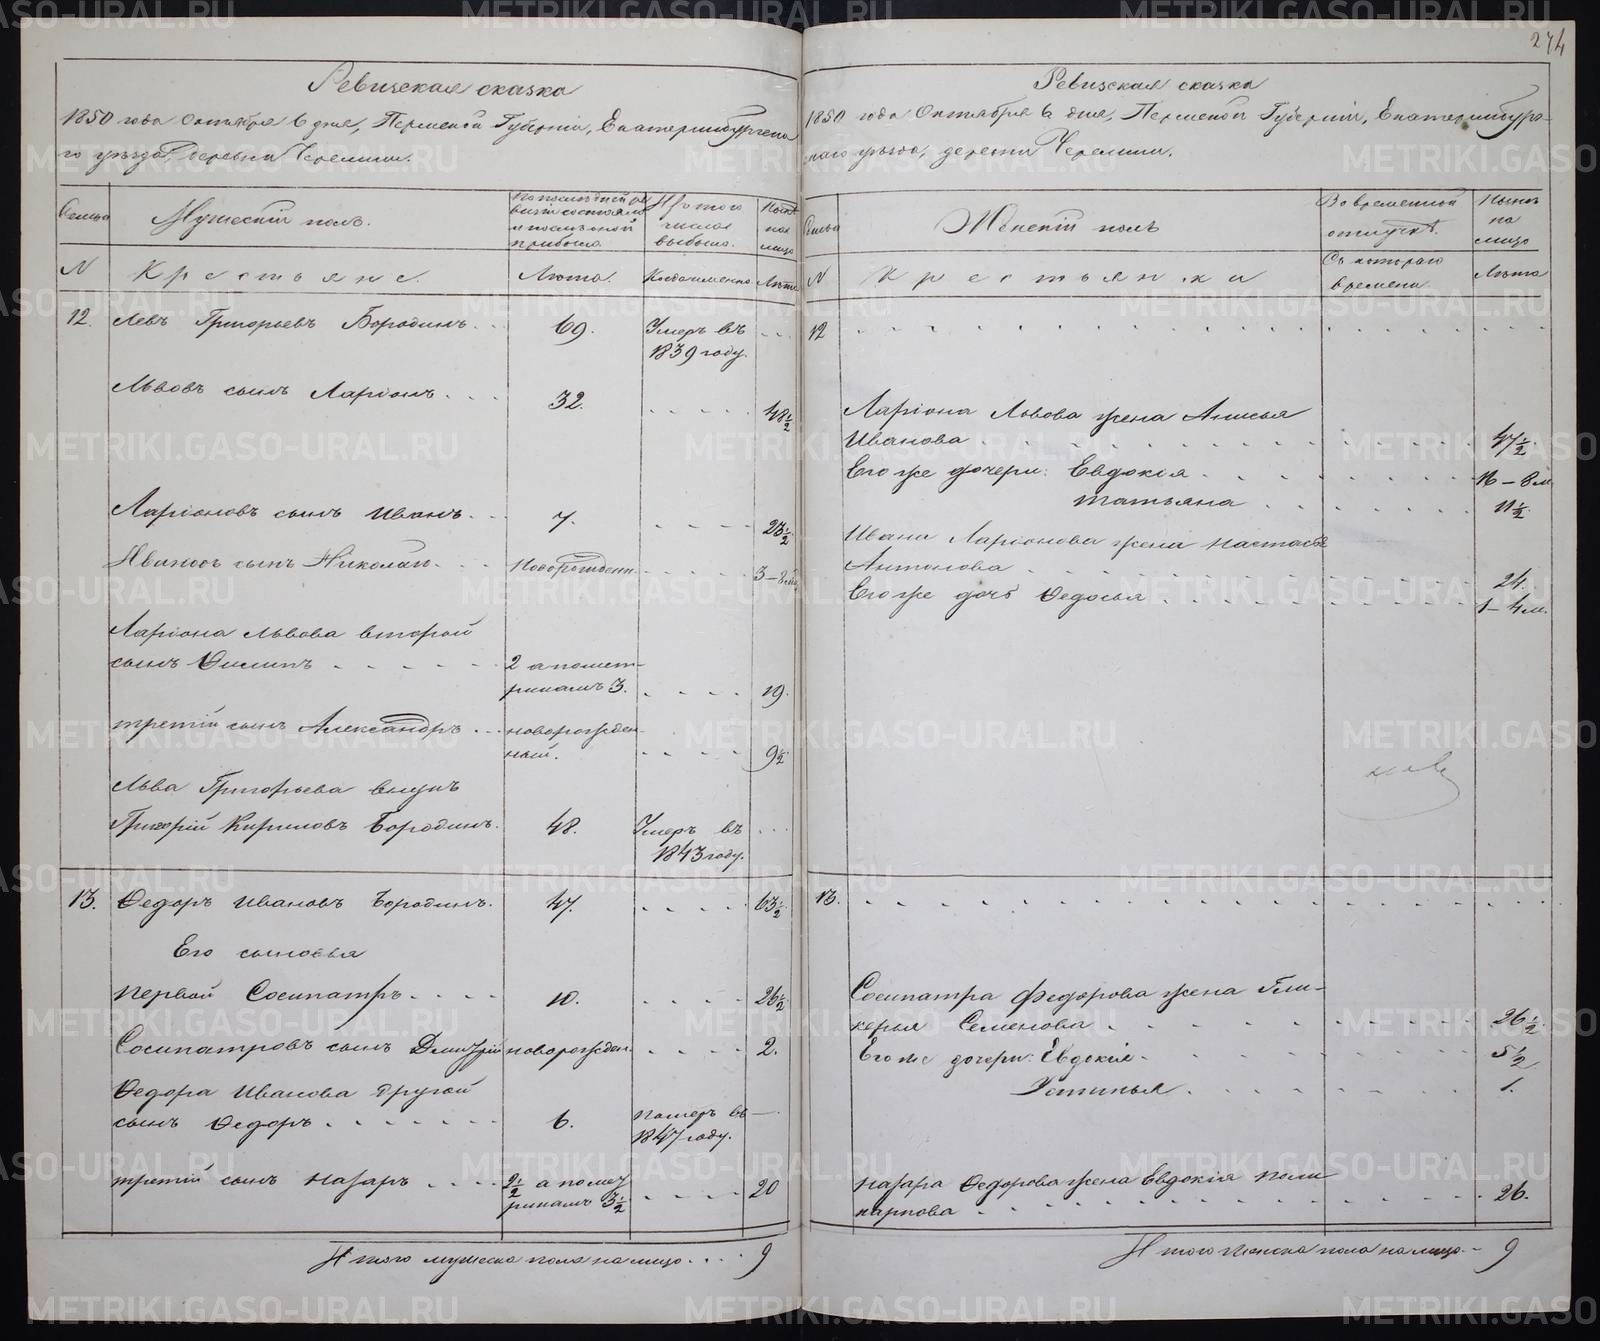 274
Ревизская сказка
1850 года Октября 6 дня, Пермской Губерніи, Екатеринбургска-
го уѣзда, деревни Черемши.
Семья
Мужескій полъ.
По послѣдней ре
визіи состояло
и послѣ оной
прибыло.
Изъ того
числа
выбыло.
Нынѣ
на
лицо
N
Крестьяне.
Лѣта.
Когда именно.
Лѣта
12. Левъ Григорьевъ Бородинъ. . . 69. Умеръ въ . . .
1839 году.
Львовъ сынъ Ларіонъ. . . . 32. . . . . 48 1/2
Ларіоновъ сынъ Иванъ. . . 7. . . . . 23 1/2
Ивановъ сынъ Николай. . . . Новорожденн. . . . . 3 – 8 м.
Ларіона Львова второй
сынъ Филипъ . . . . . . 2 а по мет-
рикамъ 3. . . . . 19.
третій сынъ Александръ. . . новорожден-
ный. . . . . 9 1/2
Льва Григорьева внукъ
Григорій Кириловъ Бородинъ. 48. Умеръ въ . . .
1843 году.
13. Федоръ Ивановъ Бородинъ. 47. . . . . 63 1/2
Его сыновья
первой Сосипатръ. . . . 10. . . . . 26 1/2
Сосипатровъ сынъ Дмитрій новорожден. . . . . 2.
Федора Иванова другой
сынъ Федоръ. . . . . . . 6. Померъ въ —
1847 году.
третій сынъ Назаръ. . . . 2 1/2 а по мет
рикамъ 3 1/2 . . . . 20
Итого мужеска пола на лицо. . . . 9
Ревизская сказка
1850 года Октября 6 дня, Пермской Губерніи, Екатеринбург-
скаго уѣзда, деревни Черемши.
Семья
Женскій полъ
Во временной
отлучкѣ.
Нынѣ
на
лицо
N
Крестьянки
Съ котораго
времени.
Лѣта
12
Ларіона Львова жена Анисья
Иванова . . . . . . . . 47 1/2
Его же дочери: Евдокія . . . . . 16 – 8 м.
Татьяна . . . . . 11 1/2
Ивана Ларіонова жена Настасья
Антонова . . . . . . . . 24.
Его же дочь Федосья . . . . . . 1 – 4 м.
13.
Сосипатра Федорова жена Гли-
керья Семенова . . . . . . 26 1/2
Его же дочери: Евдокія. . . . . . 5 1/2
Устинья . . . . . . 1.
Назара Федорова жена Евдокія Поли
карпова . . . . . . . . 26.
Итого женска пола на лицо. – 9
METRIKI.GASO-URAL.RU